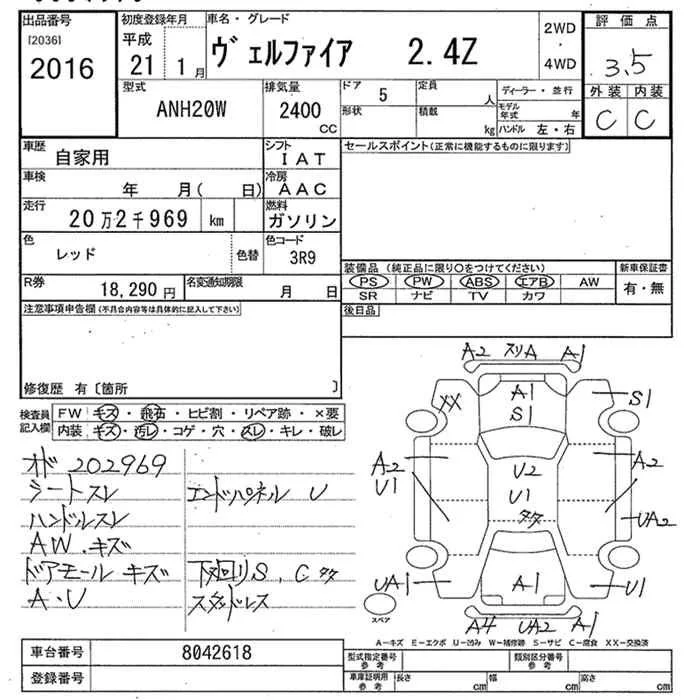 出品番号
[2036]
2016
初度登録年月
平成
21 1月
車名・グレード
ヴェルファイア 2.4Z
2WD
・
4WD
評価点
3.5
外装 内装
C C
型式
ANH20W
排気量
2400
CC
ドア 5
形状
定員
人
積載
kg
ディーラー・並行
モデル年式 年
ハンドル 左・右
車歴
自家用
シフト
IAT
車検
年 月( 日)
冷房
AAC
走行
20万2千969 km
燃料
ガソリン
色
レッド
色替
色コード
3R9
R券
18,290円
名変通知期限
月 日
セールスポイント(正常に機能するものに限ります)
装備品(純正品に限り○をつけてください)
PS PW ABS エアB AW
SR ナビ TV カワ
新車保証書
有・無
後日品
注意事項申告欄(不具合内容等は具体的に記入して下さい)
修復歴 有〔箇所 〕
検査員記入欄
FW キズ・飛石・ヒビ割・リペア跡・×要
内装 キズ・汚レ・コゲ・穴・スレ・キレ・破レ
オド 202969
シートスレ
ハンドルスレ
AW.キズ
ドアモール キズ
A・U
エンドパネル U
下回りS、Cタタ
スタッドレス
A2 スリA A1
A1
S1
XX
S1
A2
U1
U2
U1
タタ
A2
UA2
UA1
A1
U1
A4 UA2 A1
スペア
A−キズ E−エクボ U−凹み W−補修跡 S−サビ C−腐食 XX−交換済
車台番号
8042618
登録番号
型式指定番号
参考
類別区分番号
参考
車庫証明用
参考
長さ cm
幅 cm
高さ cm